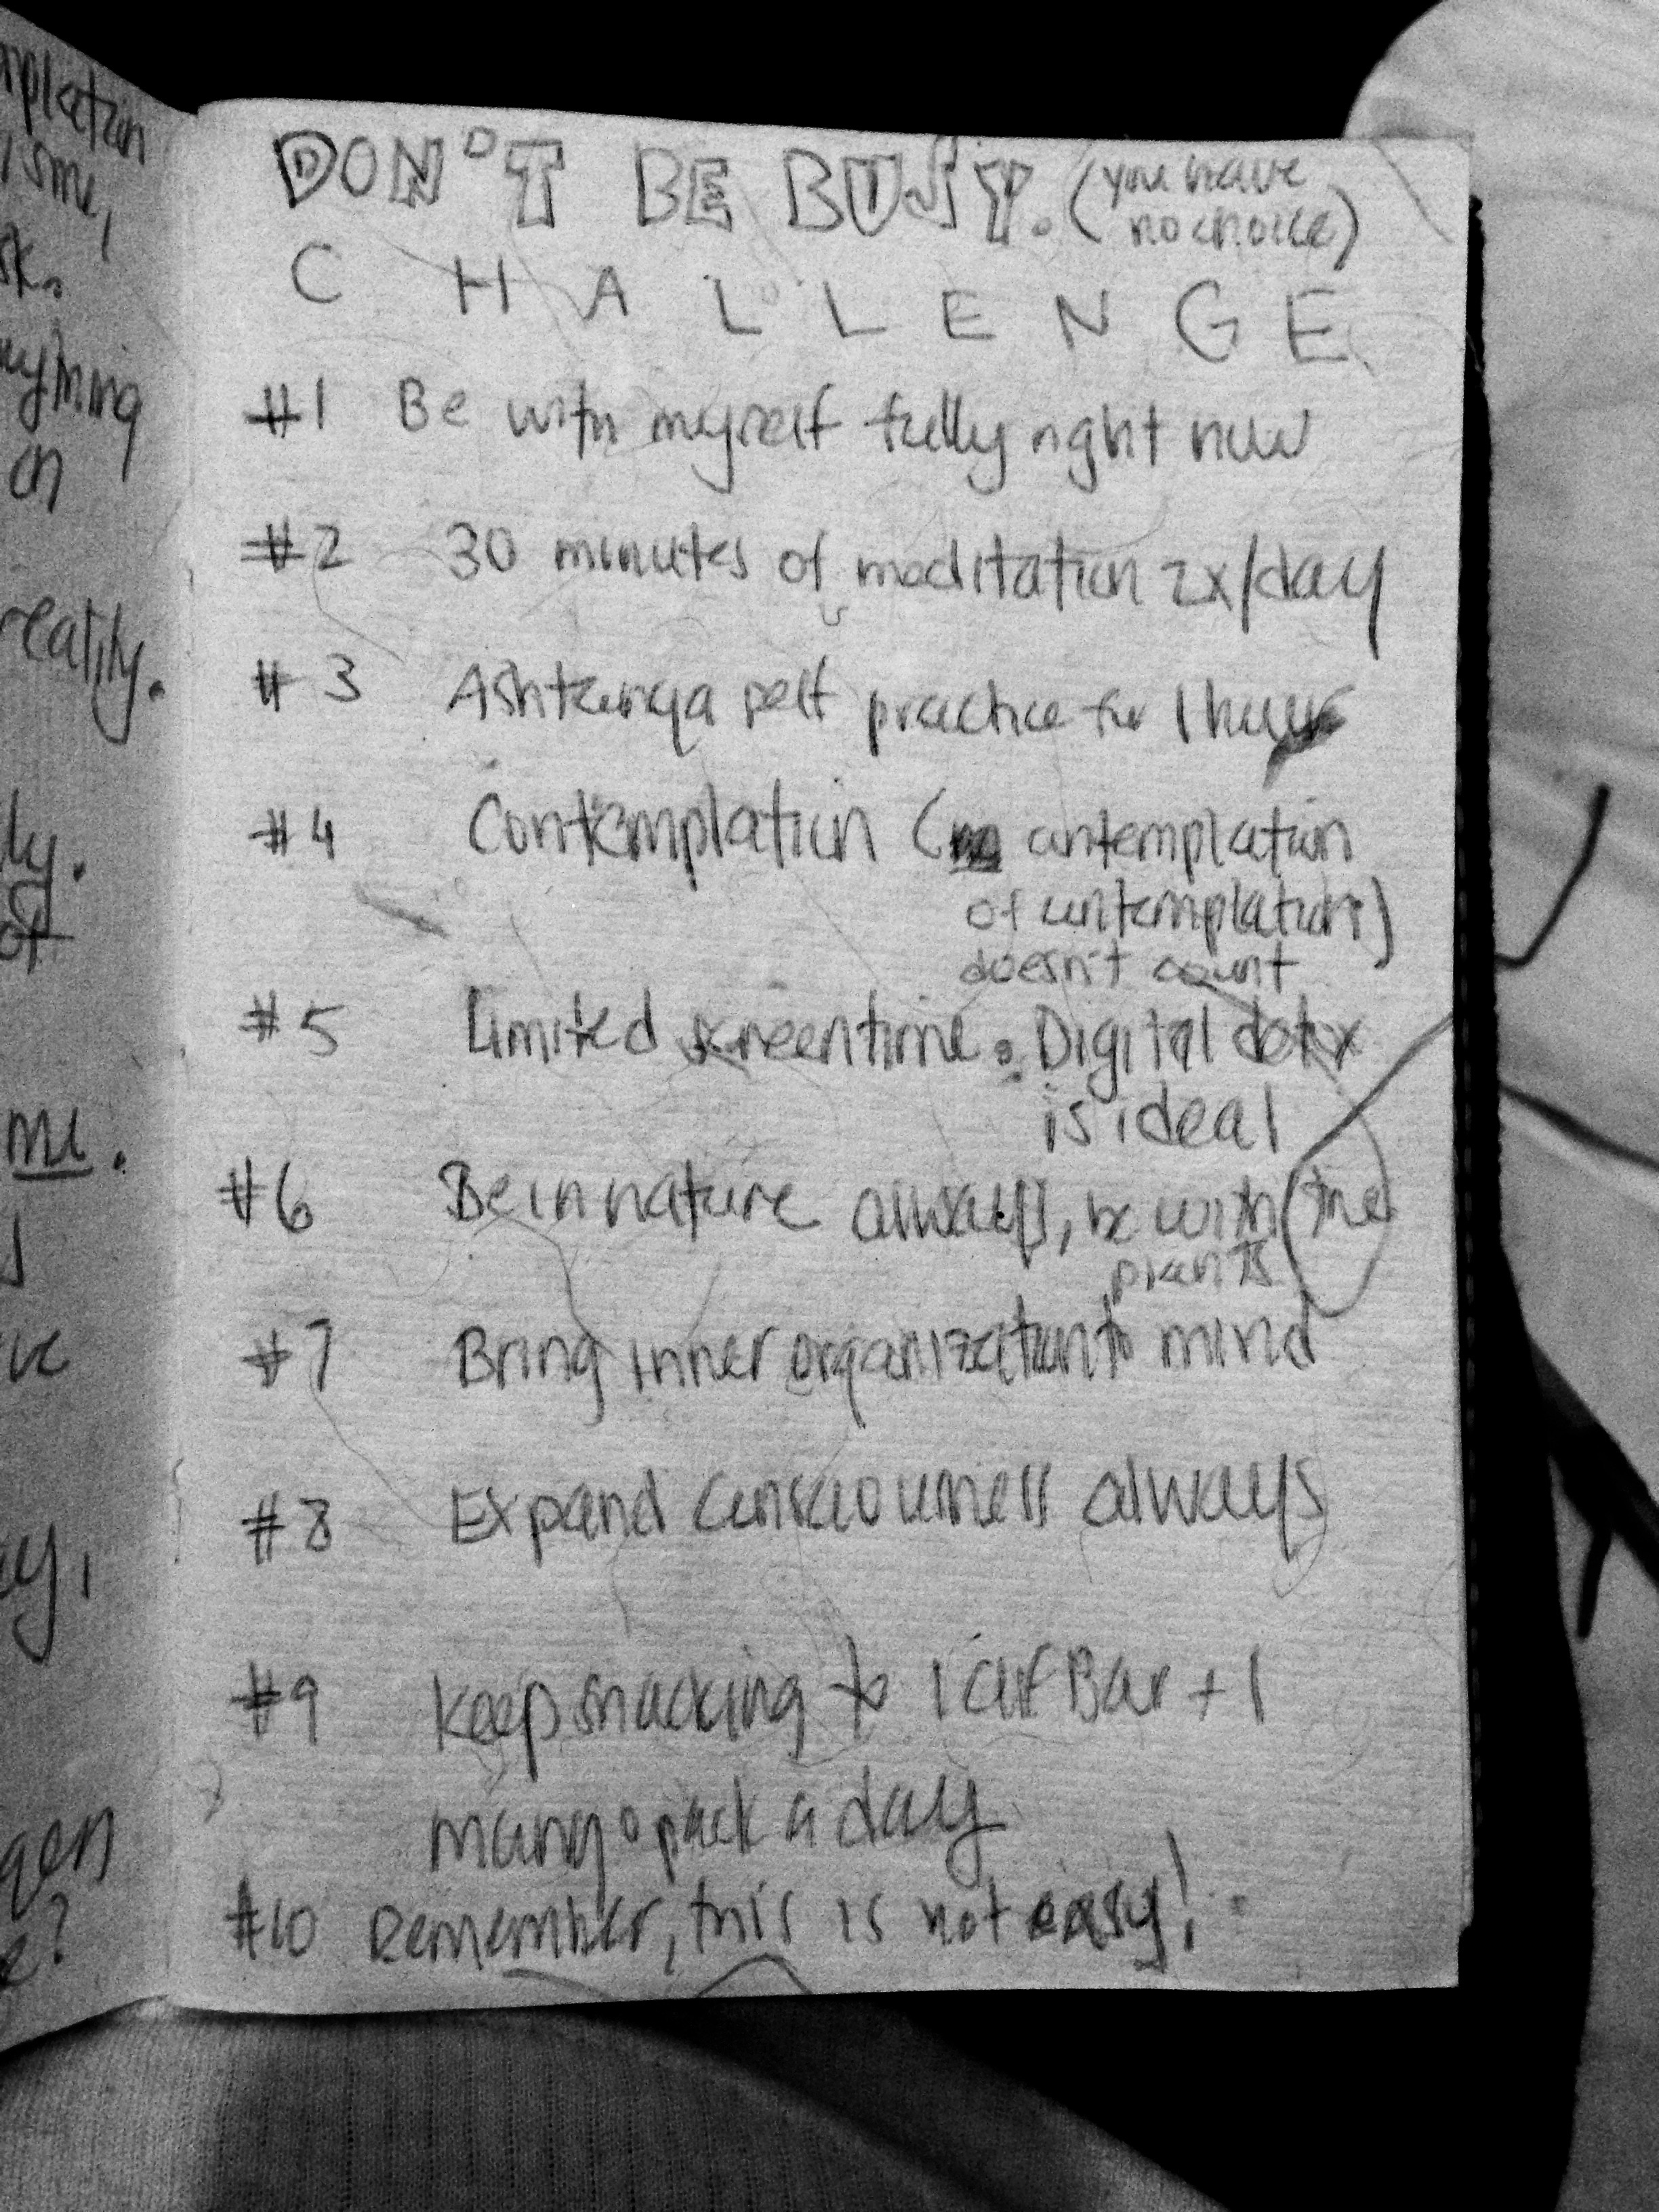 mplation
sme,
sk.
nything
ch
reality.
ly.
of
me.
ve
ey,
gen
e?
DON'T BE BUSY. (you have
no choice)
CHALLENGE
#1 Be with myself fully right now
#2 30 minutes of meditation 2x/day
#3 Ashtanga self practice for 1 hour
#4 Contemplation ( contemplation
of contemplation)
doesn't count
#5 Limited screentime. Digital detox
is ideal
#6 Be in nature always, be with the
plants
#7 Bring inner organization to mind
#8 Expand consciousness always
#9 Keep snacking to 1 Clif Bar + 1
mango pack a day
#10 Remember, this is not easy!